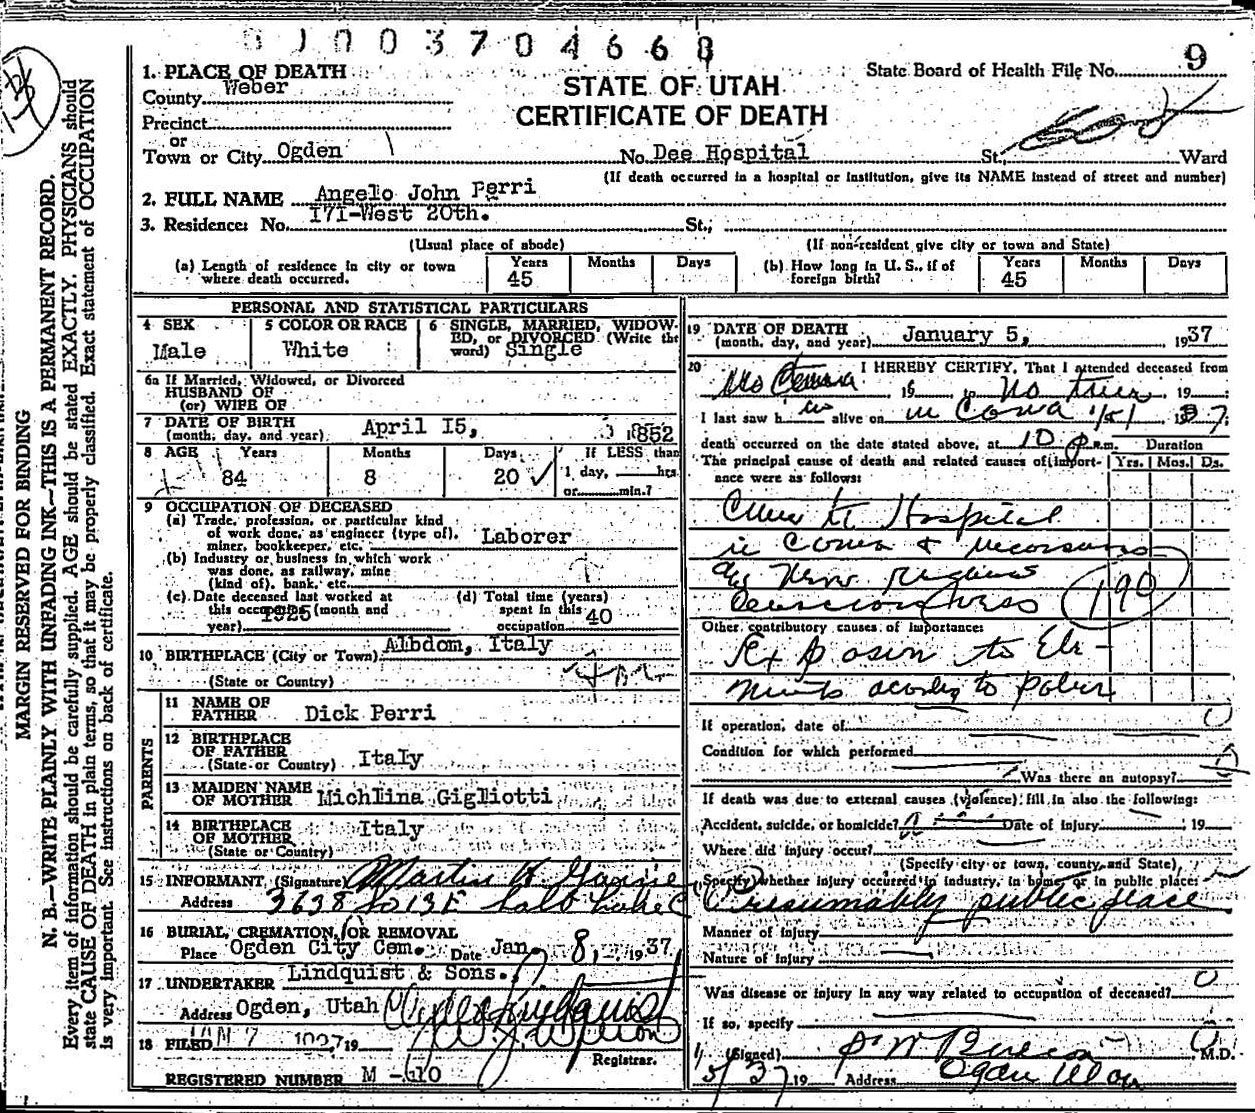 0 1 0 0 3 7 0 4 6 6 8
9
State Board of Health File No.
STATE OF UTAH
CERTIFICATE OF DEATH
MARGIN RESERVED FOR BINDING
N. B.—WRITE PLAINLY WITH UNFADING INK—THIS IS A PERMANENT RECORD.
Every item of information should be carefully supplied. AGE should be stated EXACTLY. PHYSICIANS should
state CAUSE OF DEATH in plain terms, so that it may be properly classified. Exact statement of OCCUPATION
is very important. See instructions on back of certificate.
1. PLACE OF DEATH
County Weber
Precinct
or
Town or City Ogden No. Dee Hospital St., Ward
(If death occurred in a hospital or institution, give its NAME instead of street and number)
2. FULL NAME Angelo John Perri
3. Residence: No. 171-West 20th. St.,
(Usual place of abode) (If non-resident give city or town and State)
(a) Length of residence in city or town where death occurred. Years 45 Months Days
(b) How long in U. S., if of foreign birth? Years 45 Months Days
PERSONAL AND STATISTICAL PARTICULARS
4 SEX Male
5 COLOR OR RACE White
6 SINGLE, MARRIED, WIDOWED, or DIVORCED (Write the word) Single
6a If Married, Widowed, or Divorced
HUSBAND OF
(or) WIFE OF
7 DATE OF BIRTH
(month, day, and year) April 15, 1852
8 AGE Years 84 Months 8 Days 20
If LESS than 1 day, hrs. or min.?
9 OCCUPATION OF DECEASED
(a) Trade, profession, or particular kind of work done, as engineer (type of), miner, bookkeeper, etc. Laborer
(b) Industry or business in which work was done, as railway, mine (kind of), bank, etc.
(c) Date deceased last worked at this occupation (month and year) 1925
(d) Total time (years) spent in this occupation 40
10 BIRTHPLACE (City or Town) Albdom, Italy
(State or Country)
PARENTS
11 NAME OF FATHER Dick Perri
12 BIRTHPLACE OF FATHER (State or Country) Italy
13 MAIDEN NAME OF MOTHER Michlina Gigliotti
14 BIRTHPLACE OF MOTHER (State or Country) Italy
15 INFORMANT (Signature) Martin
Address 3638 So 13 E Salt Lake C
16 BURIAL, CREMATION, OR REMOVAL
Place Ogden City Cem. Date Jan. 8, 1937
17 UNDERTAKER Lindquist & Sons.
Address Ogden, Utah
18 FILED JAN 7 1937 19
W. J. Wilson
Registrar.
REGISTERED NUMBER M - 10
19 DATE OF DEATH
(month, day, and year) January 5, 1937
20 I HEREBY CERTIFY, That I attended deceased from
19 to no time, 19
I last saw h alive on in Coma 1/5/ 1937
death occurred on the date stated above, at 10 p.m. Duration
The principal cause of death and related causes of importance were as follows: Yrs. Mos. Ds.
Came to Hospital
in Coma &
190
Other contributory causes of importance:
Exposure to Ele-
ments according to Police
If operation, date of 0
Condition for which performed
Was there an autopsy?
If death was due to external causes (violence) fill in also the following:
Accident, suicide, or homicide? Date of injury 19
Where did injury occur?
(Specify city or town, county, and State)
Specify whether injury occurred in industry, in home, or in public place:
Presumably public place
Manner of injury
Nature of injury
Was disease or injury in any way related to occupation of deceased? 0
If so, specify
(Signed) M.D.
1/5/37 19 Address Ogden Utah